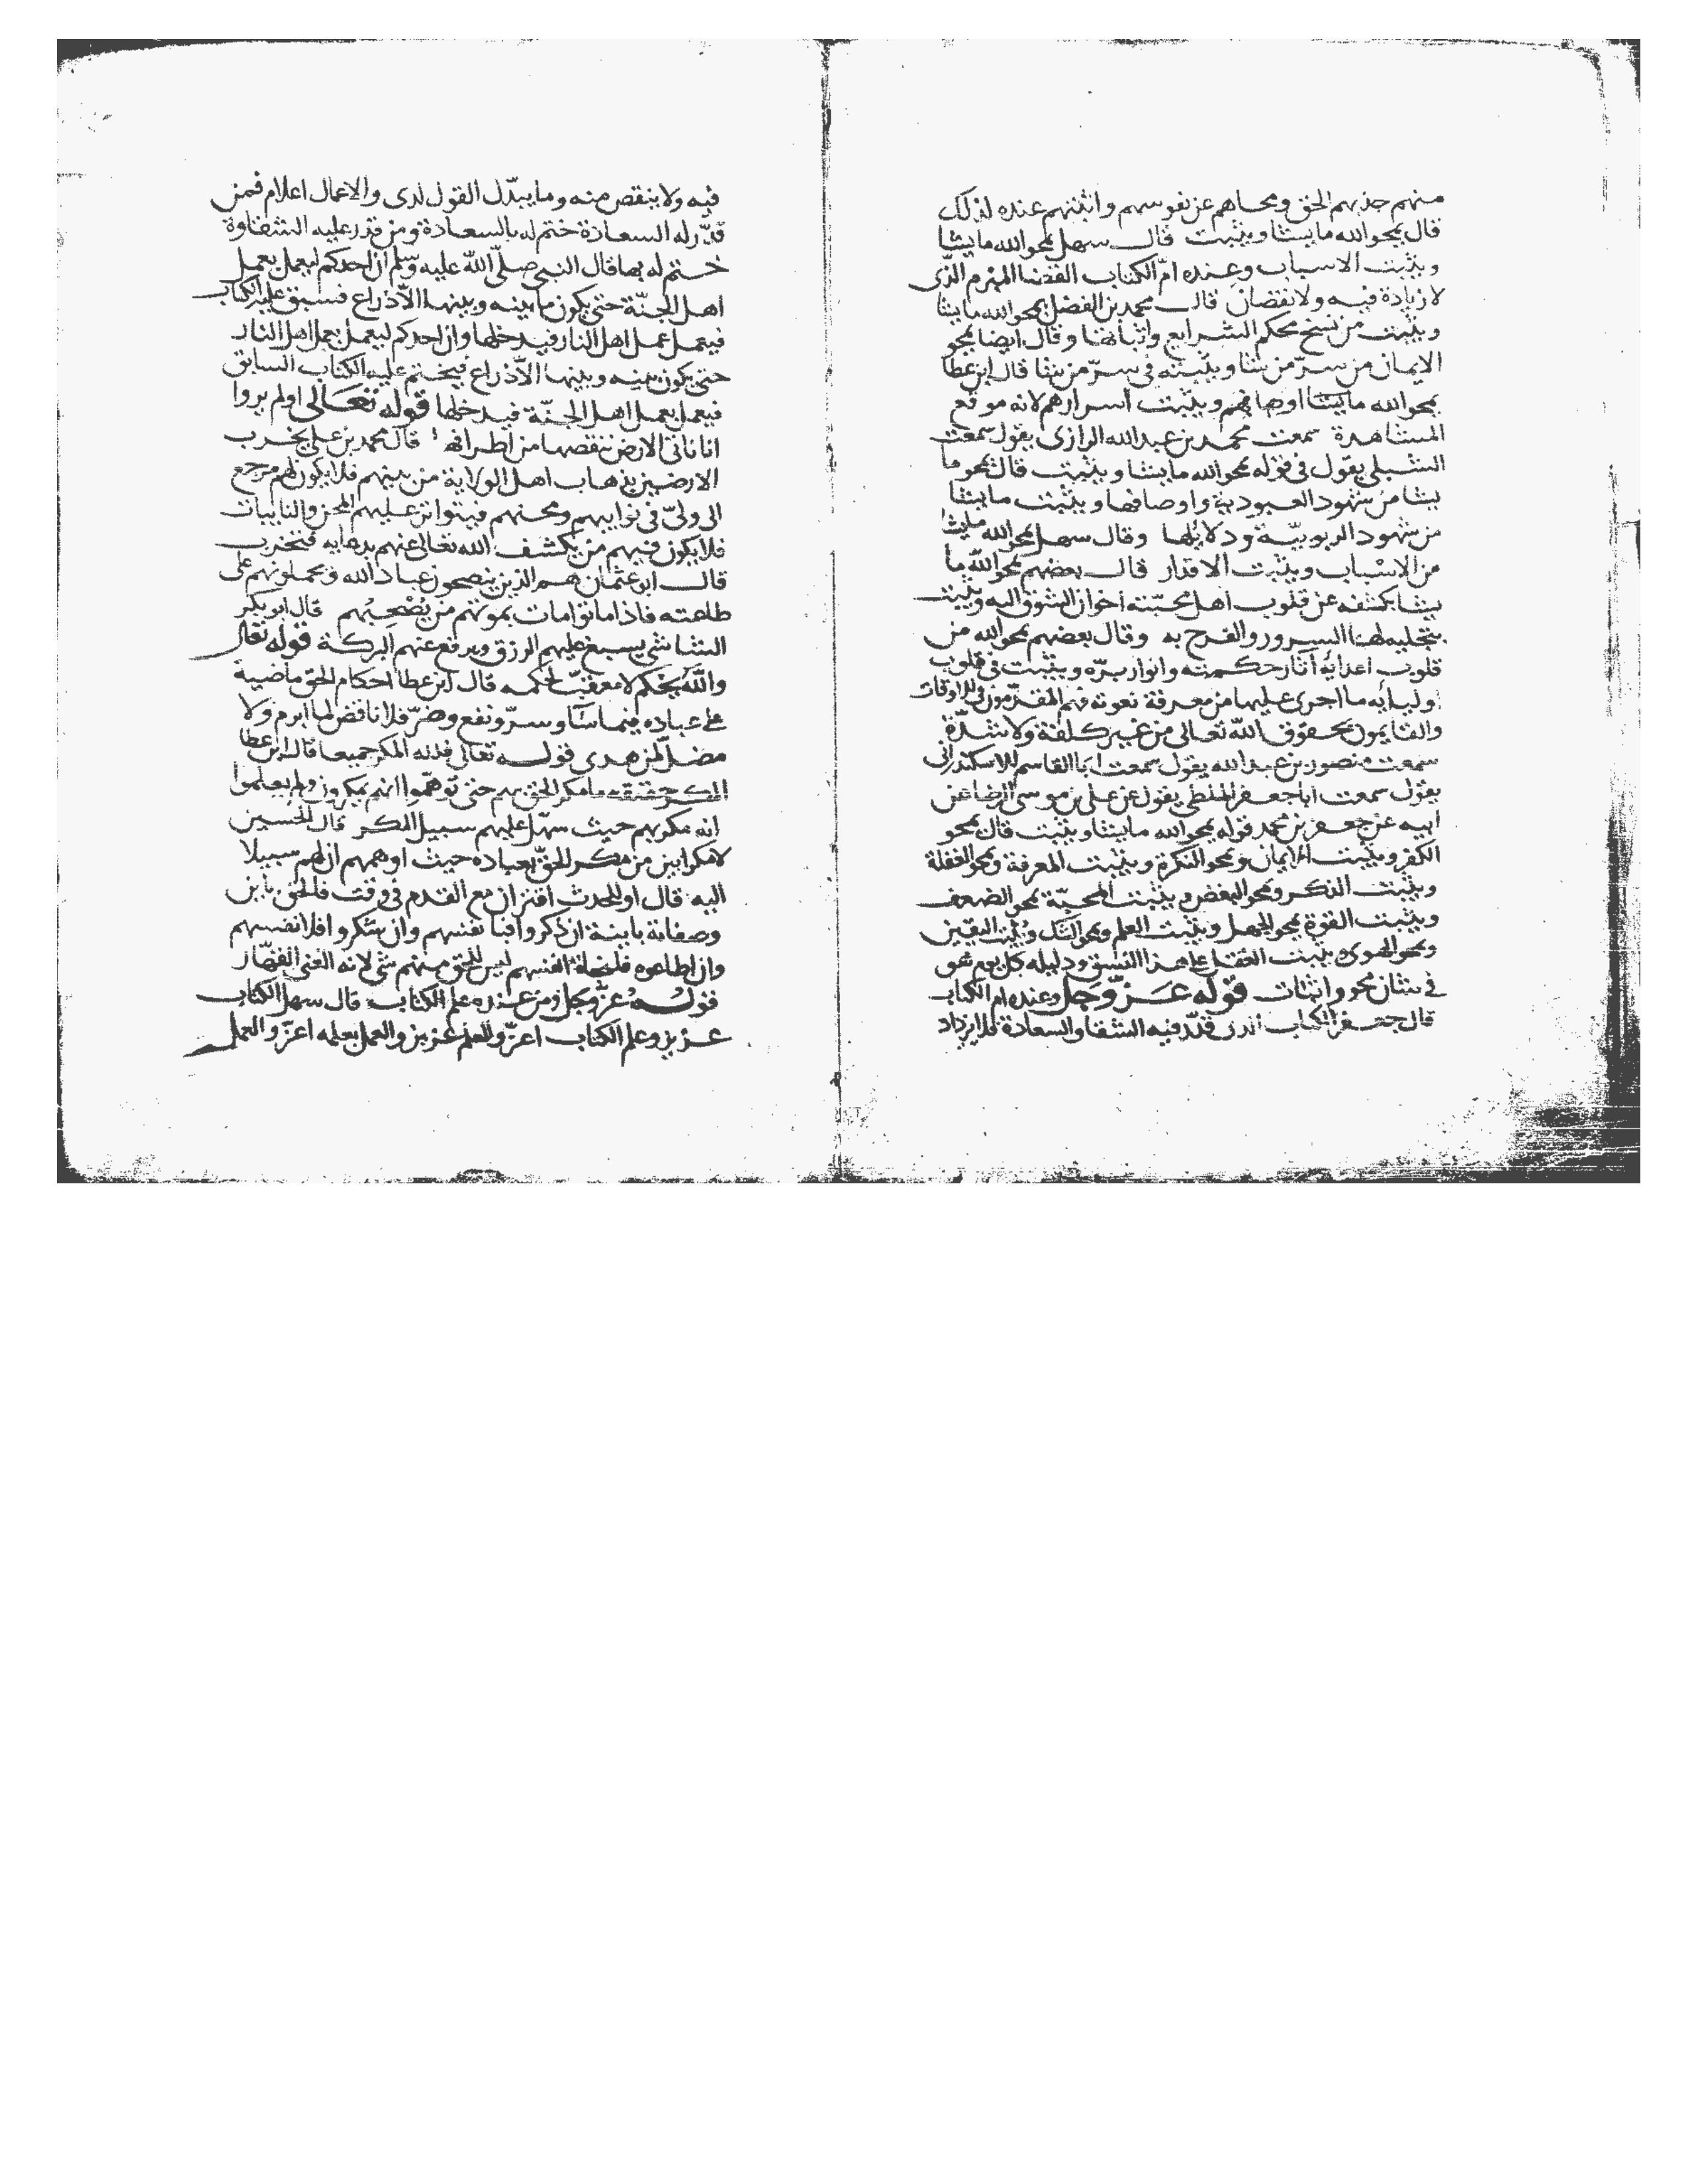 منهم جذبهم الحق ومحاهم عن نفوسهم واثبتهم عنده لذلك
قال يمحو الله ما يشا ويثبت قال سهل يمحو الله ما يشا
ويثبت الاسباب وعنده امّ الكتاب القضا المبرم الذى
لا زيادة فيه ولا نقصان قال محمد بن الفضل يمحو الله ما يشا
ويثبت من نسخ محكم الشرايع واثباتها وقال ايضا يمحو
الايمان من سرّ من شا ويثبته فى سرّ من شا قال ابن عطا
يمحو الله ما يشا اوصافهم ويثبت اسرارهم لانه موقع
المشاهدة سمعت محمد بن عبد الله الرازى يقول سمعت
الشبلى يقول فى قوله يمحو الله ما يشا ويثبت قال يمحو ما
يشا من شهود العبودية واوصافها ويثبت ما يشا
من شهود الربوبيّة ودلايلها وقال سهل يمحو الله ما يشا
من الاسباب ويثبت الاقدار قال بعضهم يمحو الله ما
يشا يكشفه عن قلوب اهل محبّته احزان الشوق اليه ويثبت
بتجليه لها السرور والفرح به وقال بعضهم يمحو الله من
قلوب اعدايه آثار حكمته وانوار برّه ويثبت فى قلوب
اوليايه ما اجرى عليها من معرفة نعوته فهم المقدّمون فى الاوقات
والقايمون بحقوق الله تعالى من غير كلفة ولا شدّة
سمعت منصور بن عبد الله يقول سمعت ابا القاسم الاسكندرانى
يقول سمعت ابا جعفر الملطى يقول عن على بن موسى الرضا عن
ابيه عن جعفر بن محمد قوله يمحو الله ما يشا ويثبت قال يمحو
الكفر ويثبت الايمان ويمحو النكرة ويثبت المعرفة ويمحو الغفلة
ويثبت الذكر ويمحو البغض ويثبت المحبّة يمحو الضعف
ويثبت القوة يمحو الجهل ويثبت العلم ويمحو الشك ويثبت اليقين
ويمحو الهوى ويثبت العقل على هذا النسق ودليله كل يوم هو
فى شان محو واثبات قوله عزّ وجل وعنده ام الكتاب
قال جعفر الكتاب الذى قدّر فيه الشقا والسعادة فلا يزداد
فيه ولا ينقص منه وما يبدّل القول لدى والاعمال اعلام فمن
قدّر له السعادة ختم له بالسعادة ومن قدر عليه الشقاوة
ختم له بها قال النبى صلّى الله عليه وسلم ان احدكم ليعمل بعمل
اهل الجنّة حتى يكون ما بينه وبينها الاّ ذراع فسبق عليه الكتاب
فيعمل عمل اهل النار فيدخلها وان احدكم ليعمل بعمل اهل النار
حتى يكون بينه وبينها الاّ ذراع فيختم عليه الكتاب السابق
فيعمل بعمل اهل الجنّة فيدخلها قوله تعالى اولم يروا
انا ناتى الارض ننقصها من اطرافها قال محمد بن على يخرب
الارضين بذهاب اهل الولاية من بينهم فلا يكون لهم مرجع
الى ولىّ فى نوايبهم ومحنهم فيتواتر عليهم المحن والنايبات
فلا يكون فيهم من يكشف الله تعالى عنهم بدعايه فتخرب
قال ابو عثمان هم الذين ينصحون عباد الله ويحملونهم على
طاعته فاذا ماتوا مات بموتهم من يصحبهم قال ابو بكر
الشاشى يسبغ عليهم الرزق ويرفع عنهم البركة قوله تعالى
والله يحكم لا معقب لحكمه قال ابن عطا احكام الحق ماضية
على عباده فيما سآء وسرّ ونفع وضرّ فلا ناقض لما ابرم ولا
مضلّ لمن هدى قوله تعالى فلله المكر جميعا قال ابن عطا
المكر حقيقه ما مكر الحق بهم حتى توهّموا انهم يمكرون ولم يعلموا
انه مكر بهم حيث سهّل عليهم سبيل المكر قال الحسين
لا مكر ابين من مكر الحقّ بعباده حيث اوهمهم ان لهم سبيلا
اليه قال او للحدث اقتران مع القدم فى وقت فالحق باين
وصفاته باينة ان ذكروا فبانفسهم وان شكروا فلانفسهم
وان اطاعوه فلنجاة انفسهم ليس للحق منهم شى لانه الغنى القهّار
قوله عزّ وجل ومن عنده علم الكتاب قال سهل الكتاب
عزيز وعلم الكتاب اعزّ والعلم عزيز والعمل بعلمه اعزّ والعمل